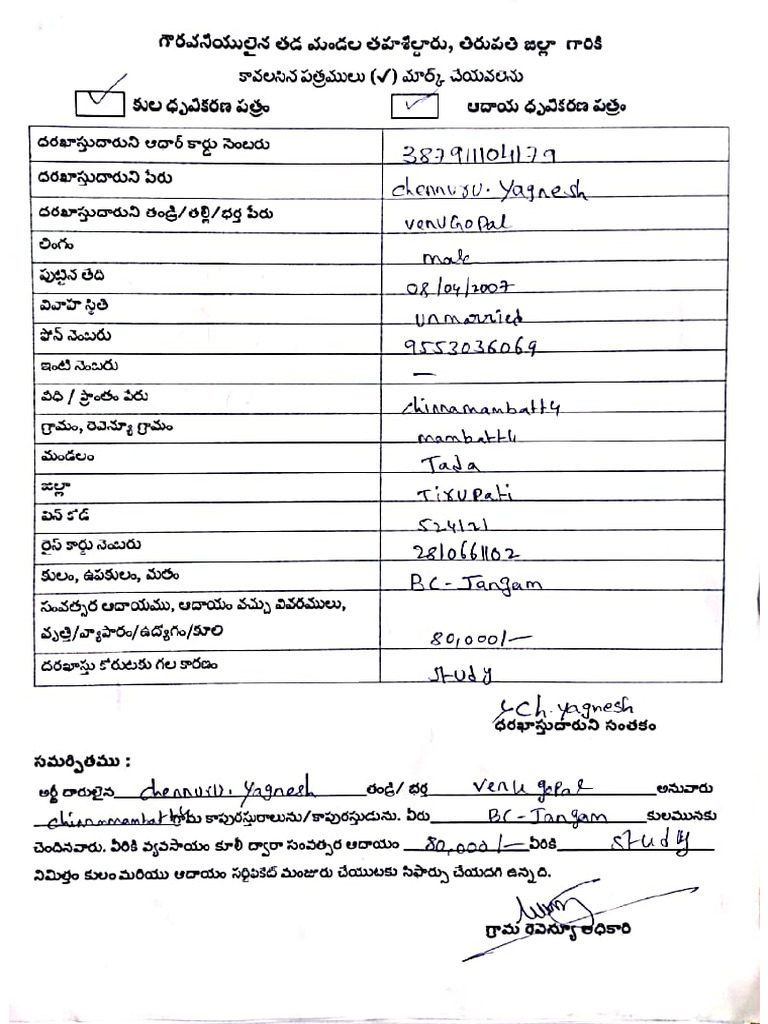 గౌరవనీయులైన తడ మండల తహశీల్దారు, తిరుపతి జిల్లా గారికి
కావలసిన పత్రములు (✓) మార్క్ చేయవలెను
✓ కుల ధృవీకరణ పత్రం ✓ ఆదాయ ధృవీకరణ పత్రం
దరఖాస్తుదారుని ఆదార్ కార్డు నెంబరు
దరఖాస్తుదారుని పేరు chennuru. Yagnesh
దరఖాస్తుదారుని తండ్రి/తల్లి/భర్త పేరు venuGopal
లింగం male
పుట్టిన తేది 08/04/2007
వివాహ స్థితి unmarried
ఫోన్ నెంబరు 9553036069
ఇంటి నెంబరు —
వీధి / ప్రాంతం పేరు chinnamambattu
గ్రామం, రెవెన్యూ గ్రామం mambattu
మండలం Tada
జిల్లా Tirupati
పిన్ కోడ్ 524121
రైస్ కార్డు నెంబరు 2810661102
కులం, ఉపకులం, మతం BC-Jangam
సంవత్సర ఆదాయము, ఆదాయం వచ్చు వివరములు,
వృత్తి/వ్యాపారం/ఉద్యోగం/కూలి 80,000/—
దరఖాస్తు కోరుటకు గల కారణం study
Ch. Yagnesh
ధరఖాస్తుదారుని సంతకం
సమర్పితము :
అర్జీ దారులైన chennuru. Yagnesh తండ్రి/ భర్త venu gopal అనువారు
chinnamambattu గ్రామ కాపురస్తురాలును/కాపురస్తుడును. వీరు BC-Jangam కులమునకు
చెందినవారు. వీరికి వ్యవసాయం కూలీ ద్వారా సంవత్సర ఆదాయం 80,000/— వీరికి study
నిమిత్తం కులం మరియు ఆదాయం సర్టిఫికెట్ మంజూరు చేయుటకు సిఫార్సు చేయదగి ఉన్నది.
గ్రామ రెవెన్యూ అధికారి